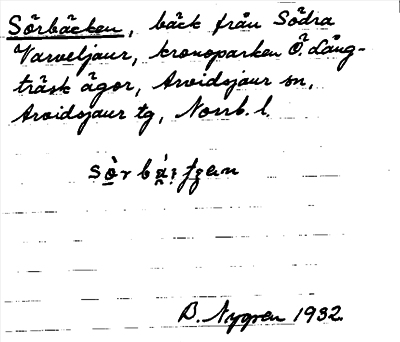 Sörbäcken, bäck från Södra
Varveljaur, kronoparken Ö. Lång-
träsk ägor, Arvidsjaur sn,
Arvidsjaur tg, Norrb. l.
B. Nygren 1932.